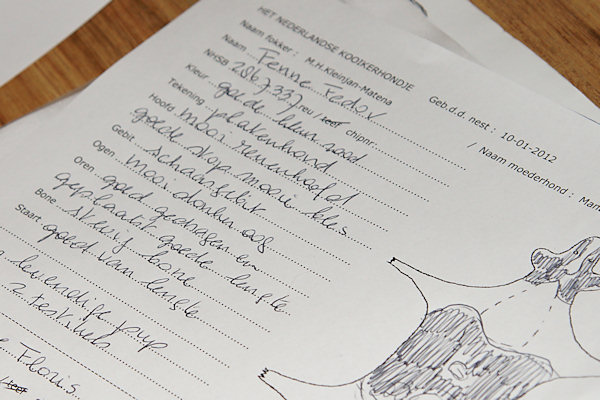 HET NEDERLANDSE KOOIKERHONDJE
Naam fokker : M.H.Kleinjan-Matena Geb.d.d. nest : 10-01-2012 / Naam moederhond :
Naam Fenne Fedor
NHSB 2867337 reu / teef chipnr.
Kleur goede kleur rood
Tekening platenhond
Hoofd mooi reuenhoofd
goede stop mooie
Gebit schaargebit
Ogen mooi donker oog
Oren goed gedragen en
geplaatst goede lengte
Bone stevig bone
Staart goed van lengte
levendige pup
2 testikels
Floris
/ teef